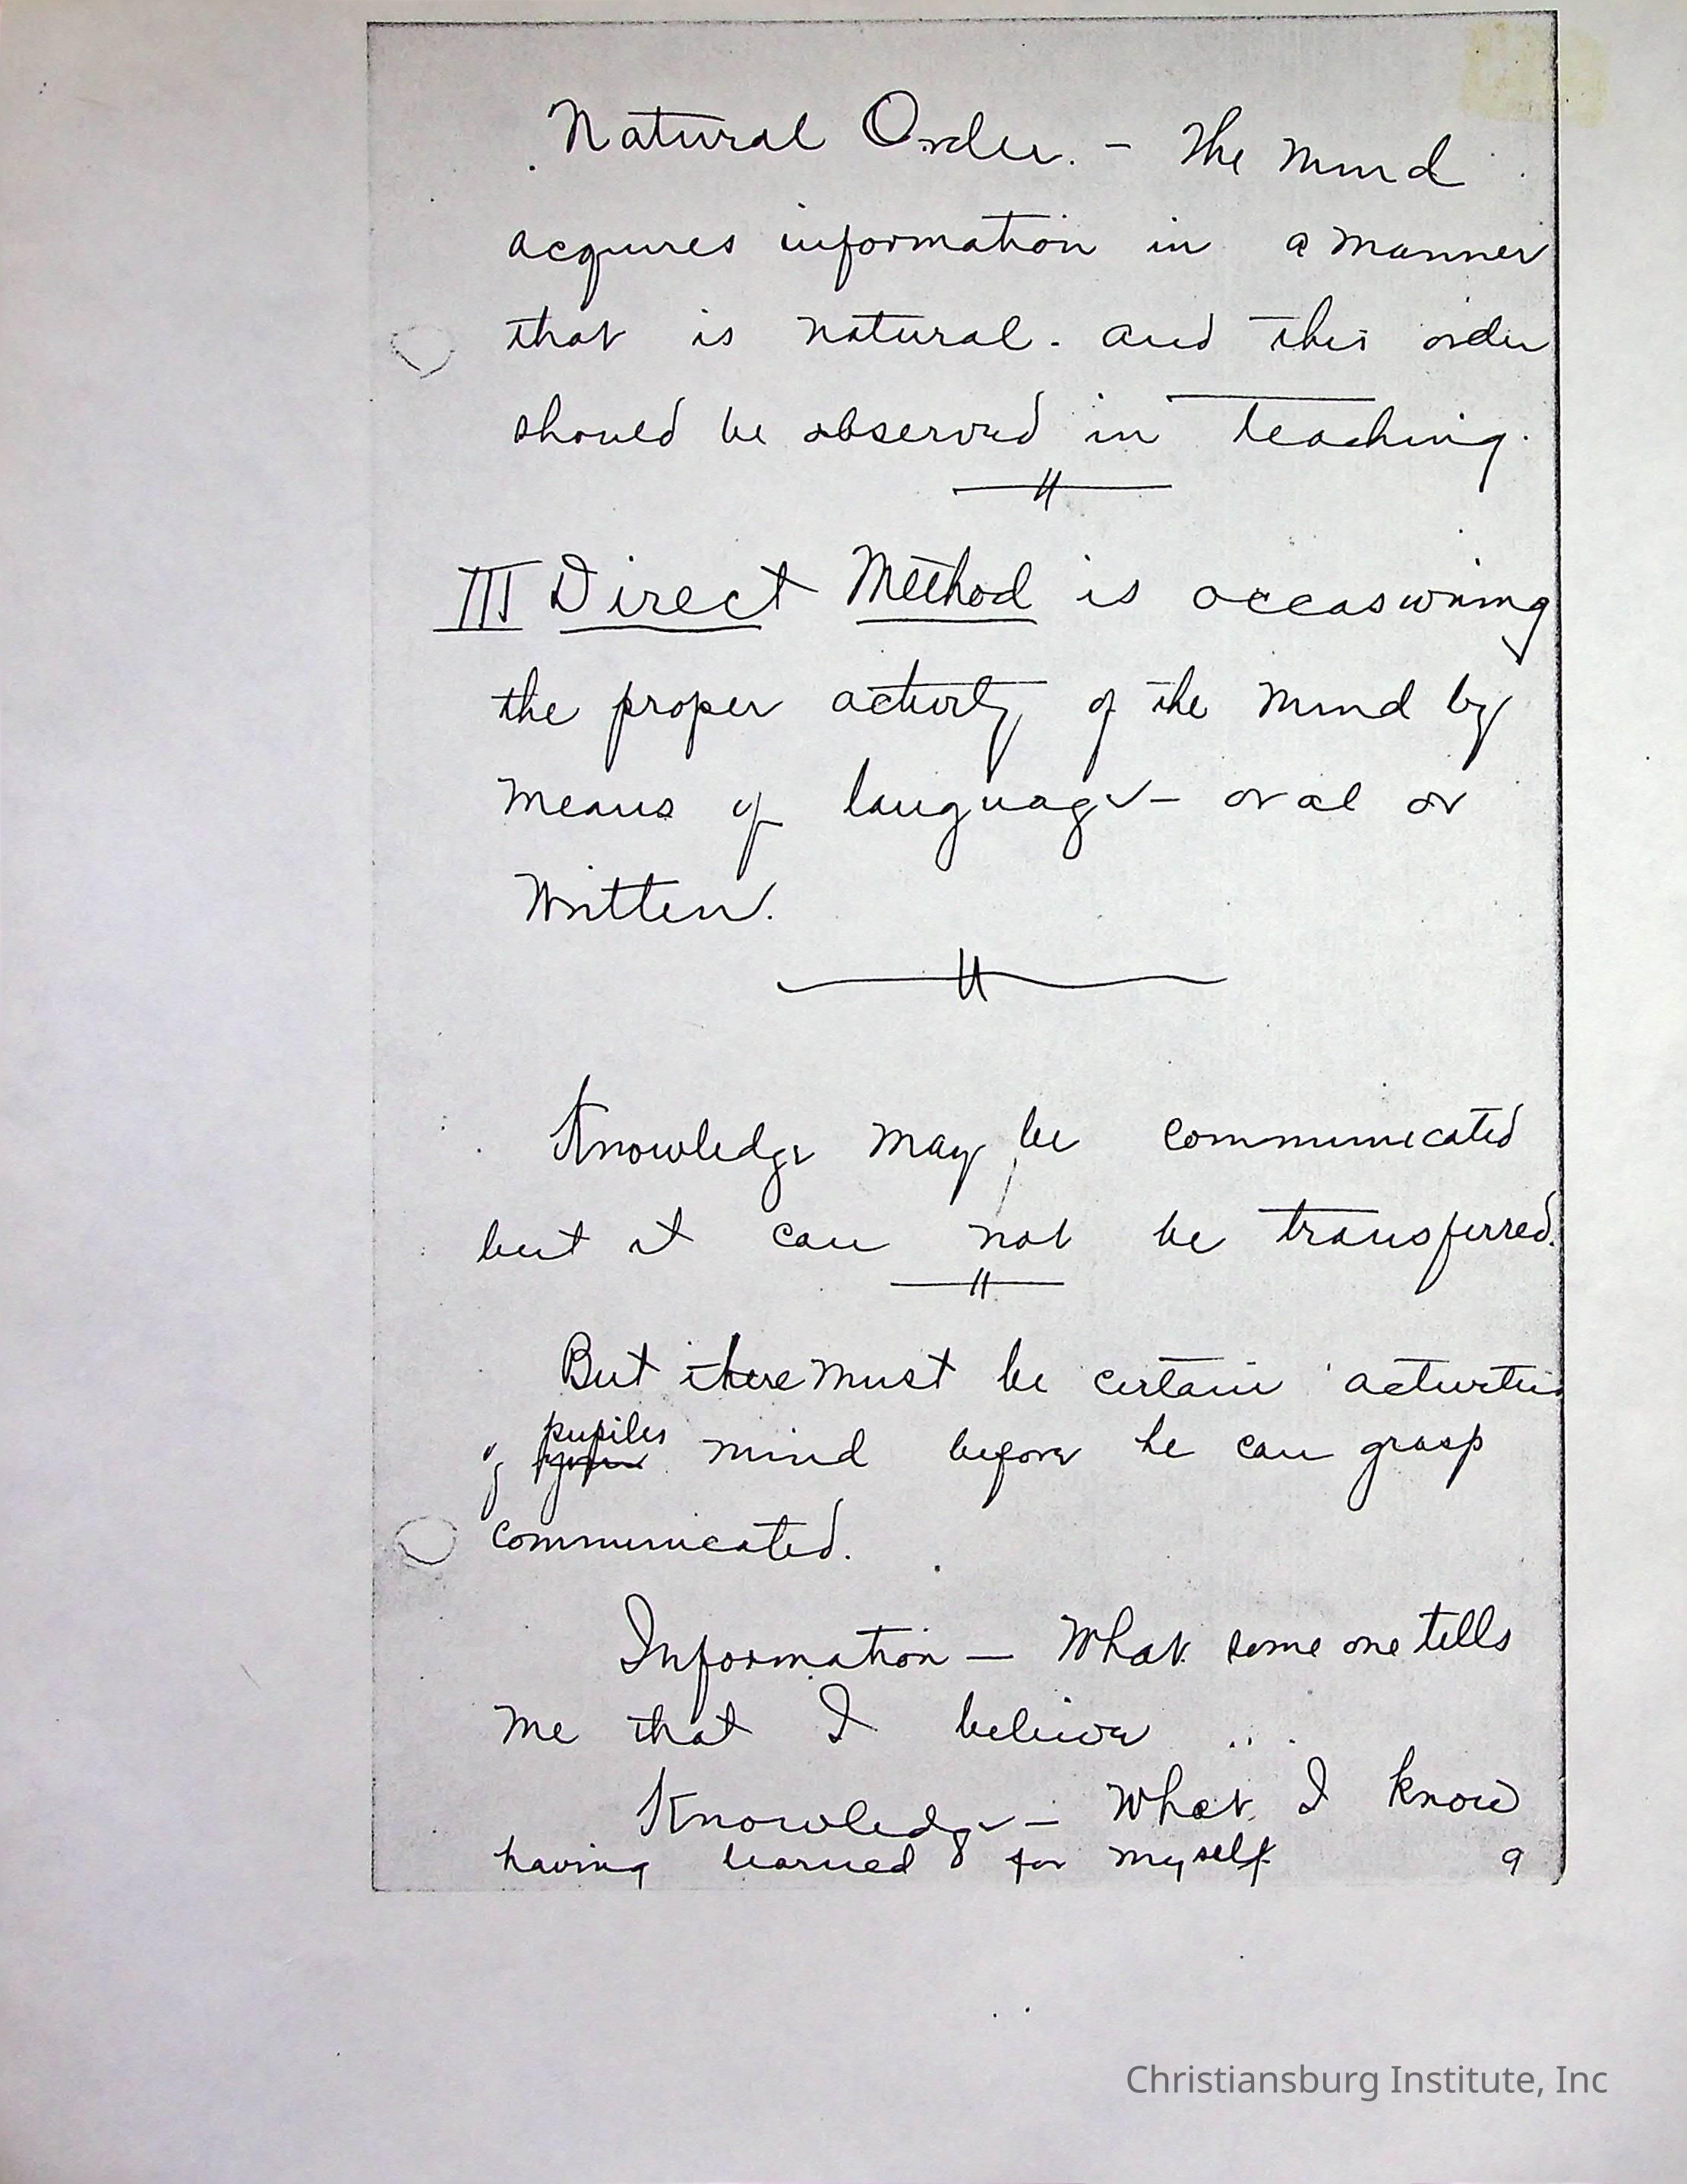 Natural Order. – The Mind
acquires information in a manner
that is natural. and this order
should be observed in teaching.
III Direct Method is occasioning
the proper activity of the mind by
means of language – oral or
written.
Knowledge may be communicated
but it can not be transferred.
But there must be certain activities
pupiles
of mind before he can grasp
communicated.
Information – What some one tells
me that I believe
Knowledge – What I know
having learned for myself
9
Christiansburg Institute, Inc